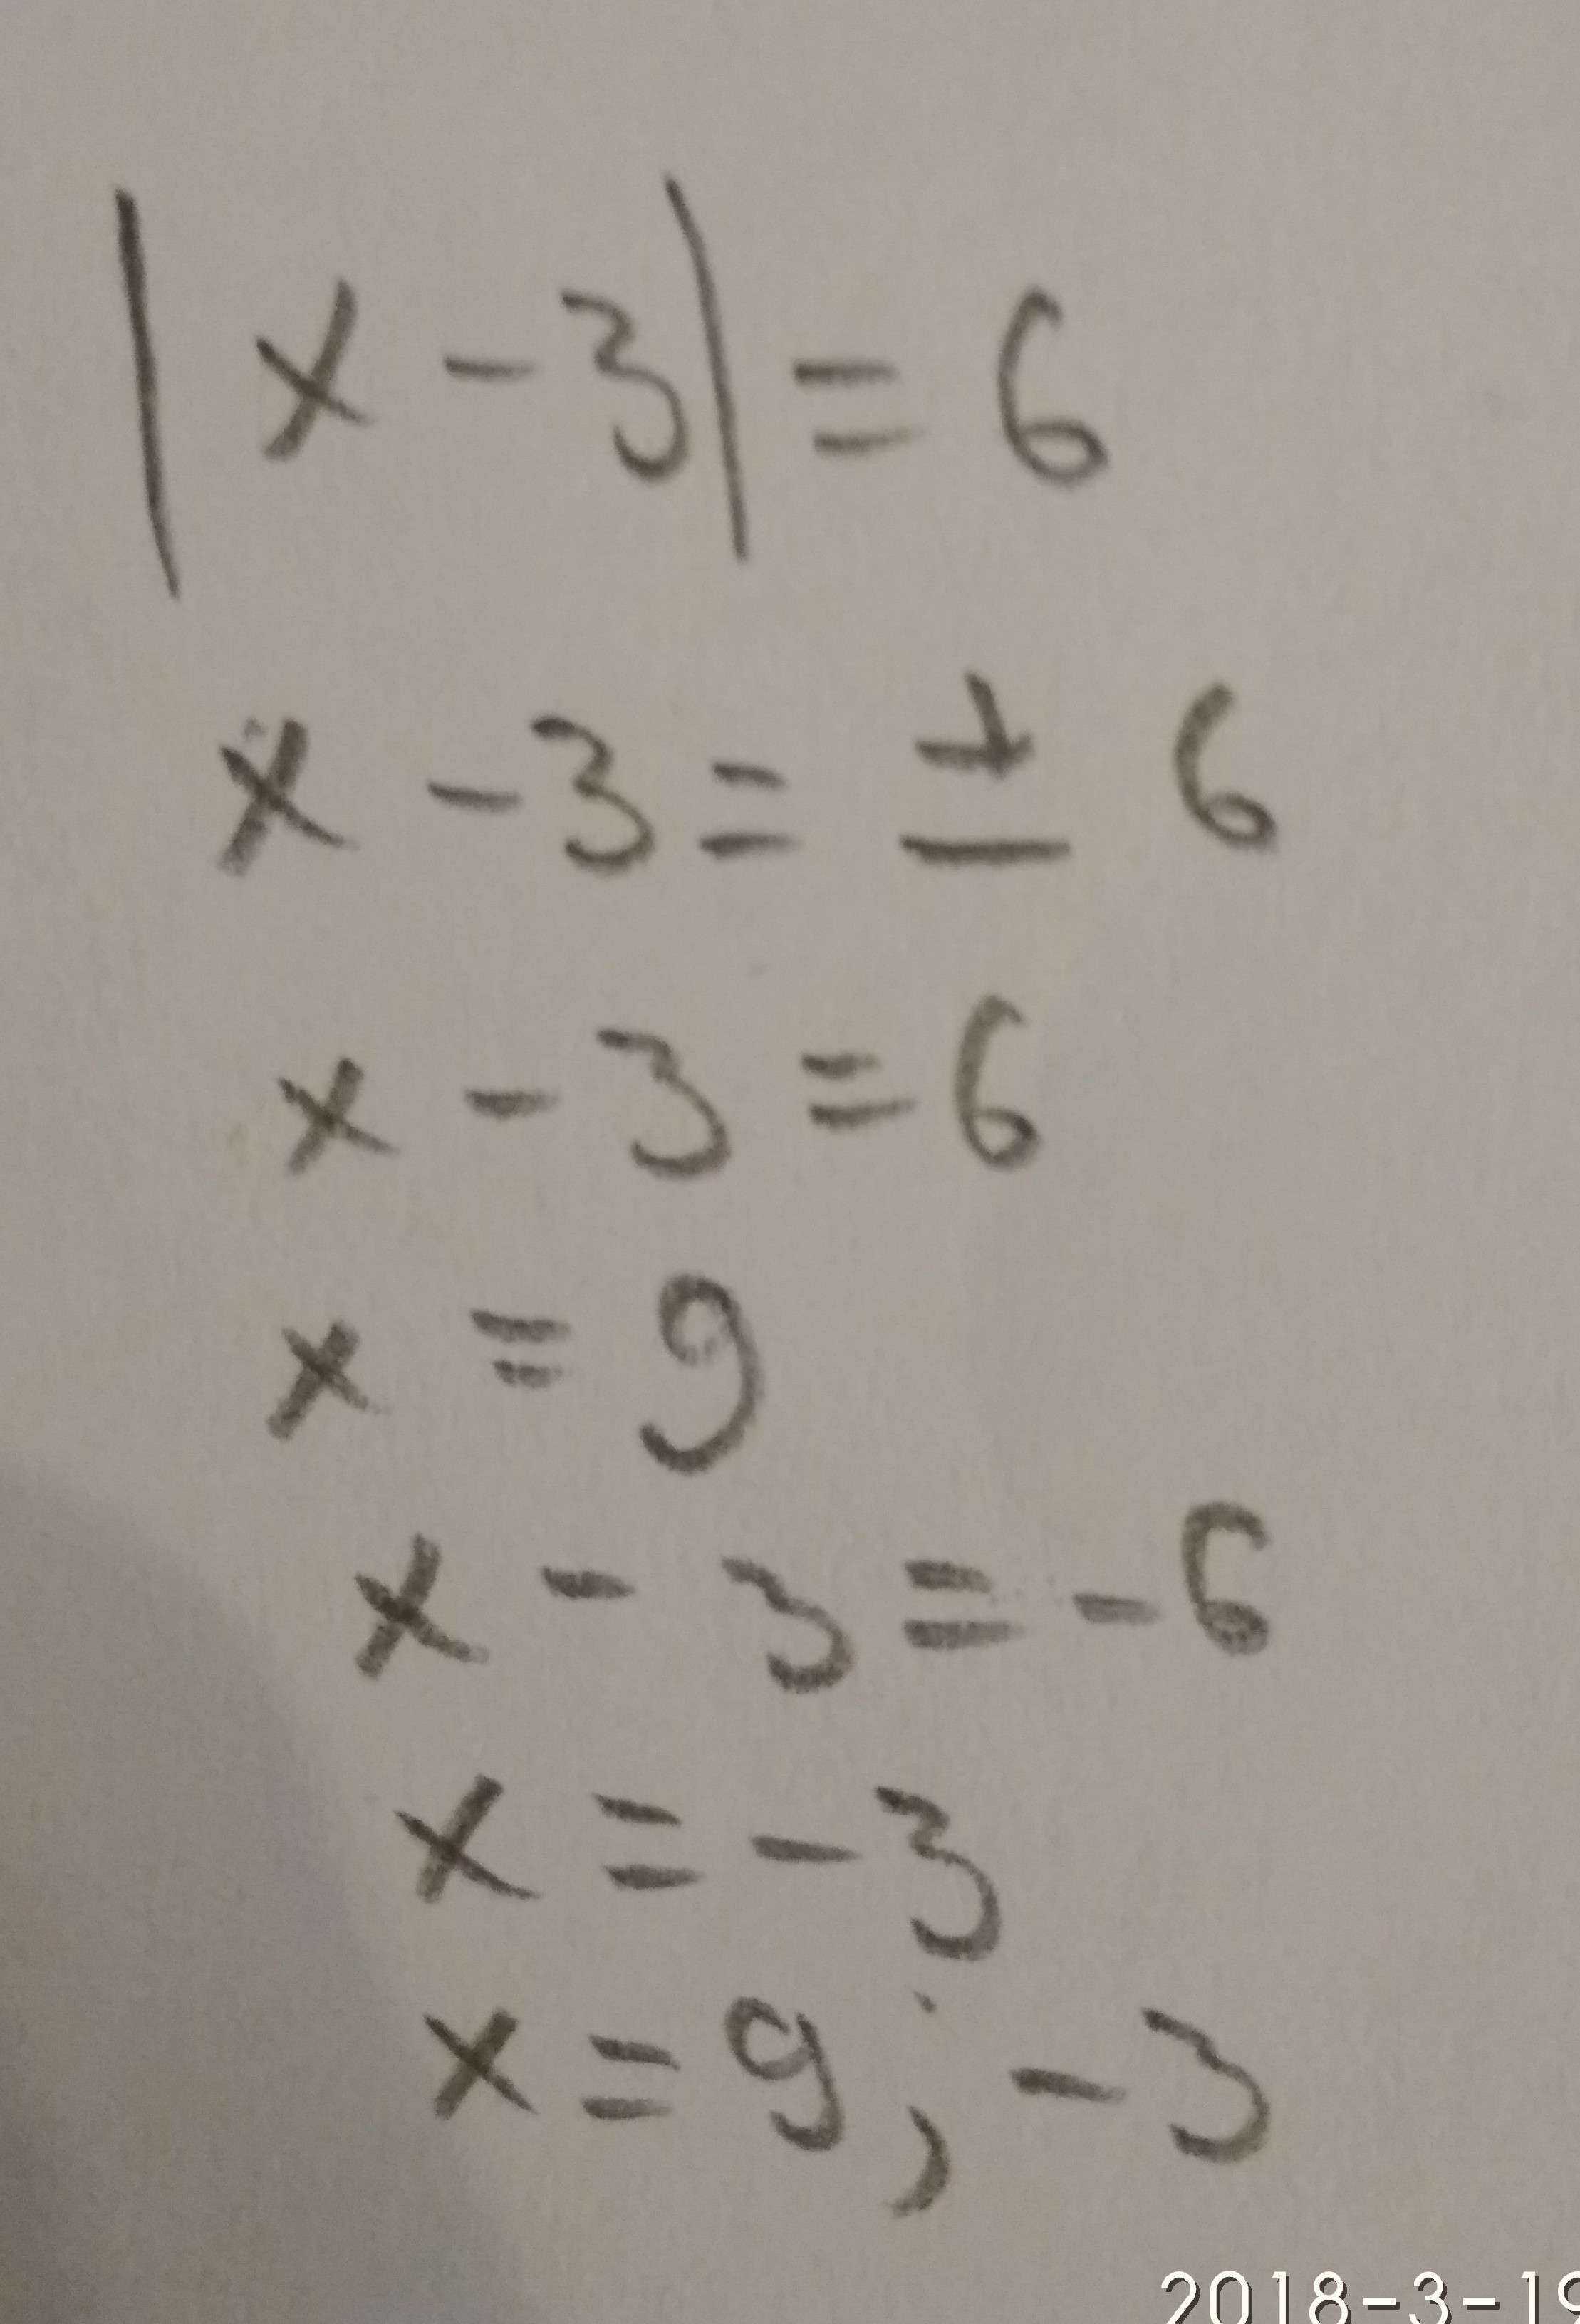 |x - 3| = 6
x - 3 = ± 6
x - 3 = 6
x = 9
x - 3 = - 6
x = - 3
x = 9; - 3
2018-3-19